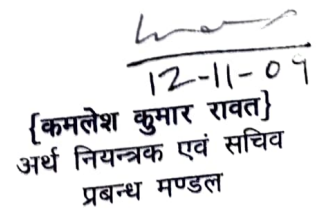 12-11-09
{कमलेश कुमार रावत}
अर्थ नियन्त्रक एवं सचिव
प्रबन्ध मण्डल